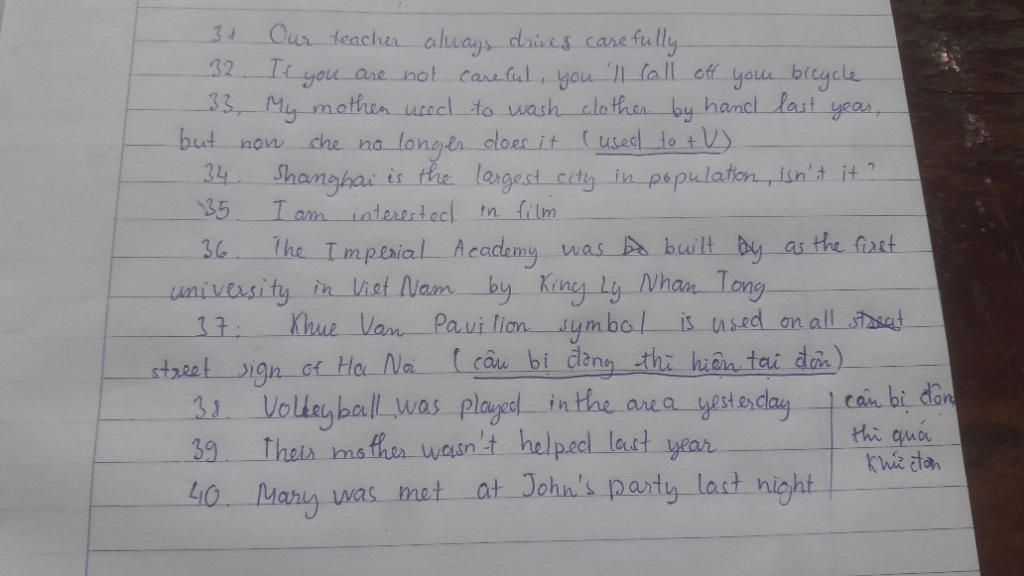 31 Our teacher always drives carefully
32. If you are not careful, you'll fall off your bicycle
33, My mother used to wash clother by hand last year,
but now she no longer does it (used to + V)
34. Shanghai is the largest city in population, isn't it?
35 I am interested in film
36. The Imperial Academy was built as the first
university in Viet Nam by King Ly Nhan Tong
37: Khue Van Pavilion symbol is used on all
street sign of Ha Noi (câu bị động thì hiện tại đơn)
38. Volleyball was played in the area yesterday câu bị động
39. Their mother wasn't helped last year thì quá
khứ đơn
40. Mary was met at John's party last night